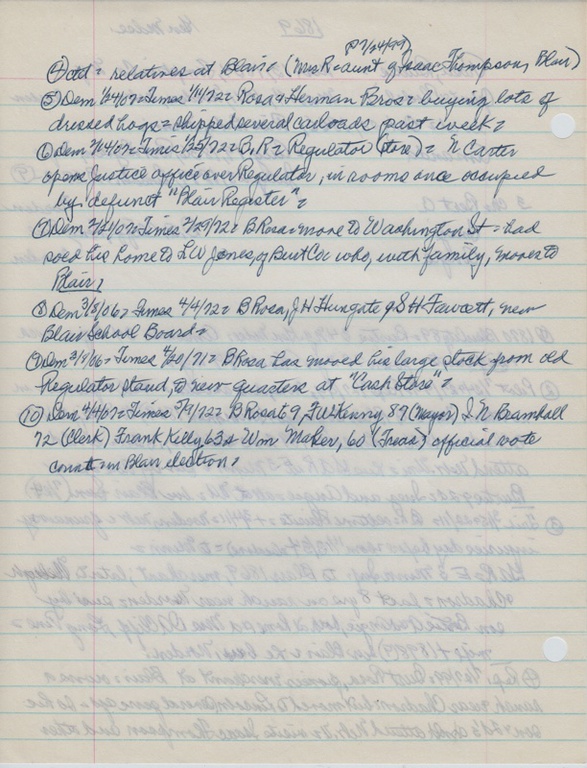 P 7/24/97)
④ attd = relatives at Blair = (Mrs R = aunt of Isaac Thompson, Blair)
⑤ Dem 1/24/07 = Times 1/11/72 = Rosa & Herman Bros = buying lots of
dressed hogs = shipped several carloads past week =
⑥ Dem = Times 1/25/72 = B.R = Regulator (store) = N Carter
opens Justice office over Regulator, in rooms once occupied
by defunct "Blair Register" =
⑦ Dem = Times 2/29/72 = B Rosa = move to Washington St = had
sold his home to L W Jones, of Burt Co = who, with family, moves to
Blair =
⑧ Dem 3/8/06 = Times 4/4/72 = B Rosa, J H Hungate & S H Fawcett, new
Blair School Board =
⑨ Dem = Times 4/20/71 = B Rosa has moved his large stock from old
Regulator stand, to new quarters at "Cash Store" =
⑩ Dem 4/4/07 = Times B Rosa 69, F W Kenny, 87 (Mayor) I. N Bramhall
72 (Clerk) Frank Kelly, 63 & Wm Maher, 60 (Treas) official vote
count = in Blair election =